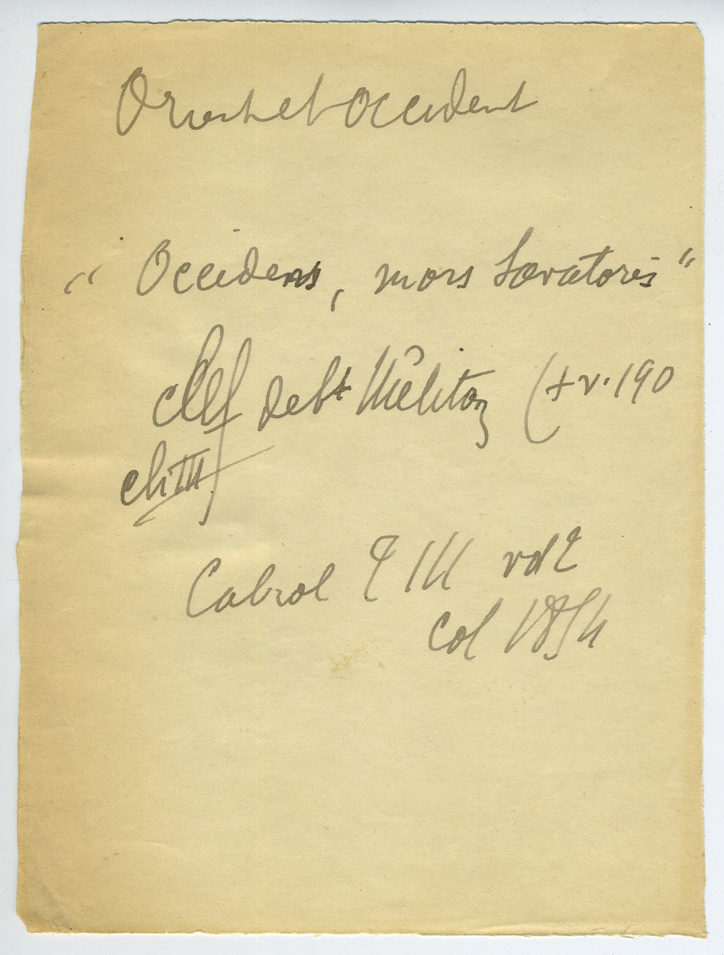 Orient et Occident
" Occidens, mors Savatoris "
Clef de St Méliton (+ v. 190
ch III
Cabrol T III vol 2
col 1854